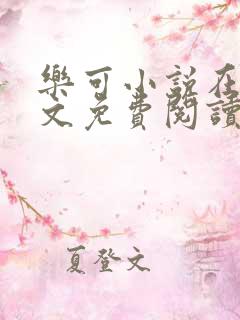 樂可小說在
文免費閱讀
夏登文